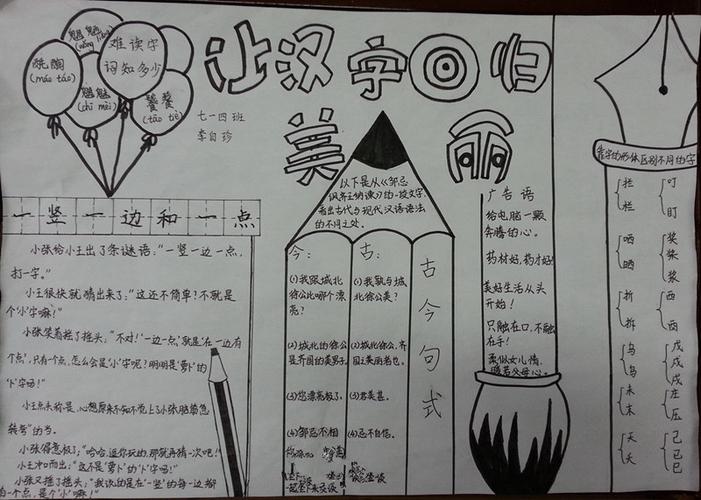 让汉字回归
美丽
难读字
词知多少
魍魉
(wǎng liǎng)
(máo táo)
魑魅
(chī mèi)
饕餮
(tāo tiè)
七一四班
李自珍
一竖一边和一点
小张给小王出了条谜语：“一竖一边一点，
打一字。”
小王很快就猜出来了：“这还不简单？不就是
个‘小’字嘛！”
小张笑着摇了摇头：“不对！‘一边一点’，就是在一边有
个点，只有一个点，怎么会是‘小’字呢？明明是‘萝卜’的
‘卜’字吗！”
王点头称是，心想原来不知不觉上了小张脑筋急
转弯的当。
小张得意极了：“哈哈，逗你玩的，那就再猜一次吧！”
小王冲口而出：“这不是‘萝卜’的‘卜’字吗！”
小张又摇了摇头：“我说的是在‘一竖’的每一边都
一个点，是个‘小’嘛！
以下是从《邹忌
讽齐王纳谏》的一段文字，
看出古代与现代汉语语法
的不同之处。
今：
(1)我跟城北
徐公比哪个漂
亮？
(2)城北的徐公
是齐国的美男子。
(3)您漂亮极了。
(4)邹忌不相
古：
(1)我孰与城
北徐公美？
(2)城北徐公，齐
国之美丽者也。
(3)君美甚。
(4)忌不自信。
古今句式
广告语
给电脑一颗
奔腾的心。
药材好，药才好！
美好生活从头
开始！
只融在口，不融
在手！
柔似女儿情，
暖若父母心。
靠字的形体区别不同的字
拦
栏
晒
晒
折
拆
乌
鸟
未
末
天
夭
叮
盯
奖
桨
浆
西
酉
戊
戌
戍
庄
压
己
已
巳